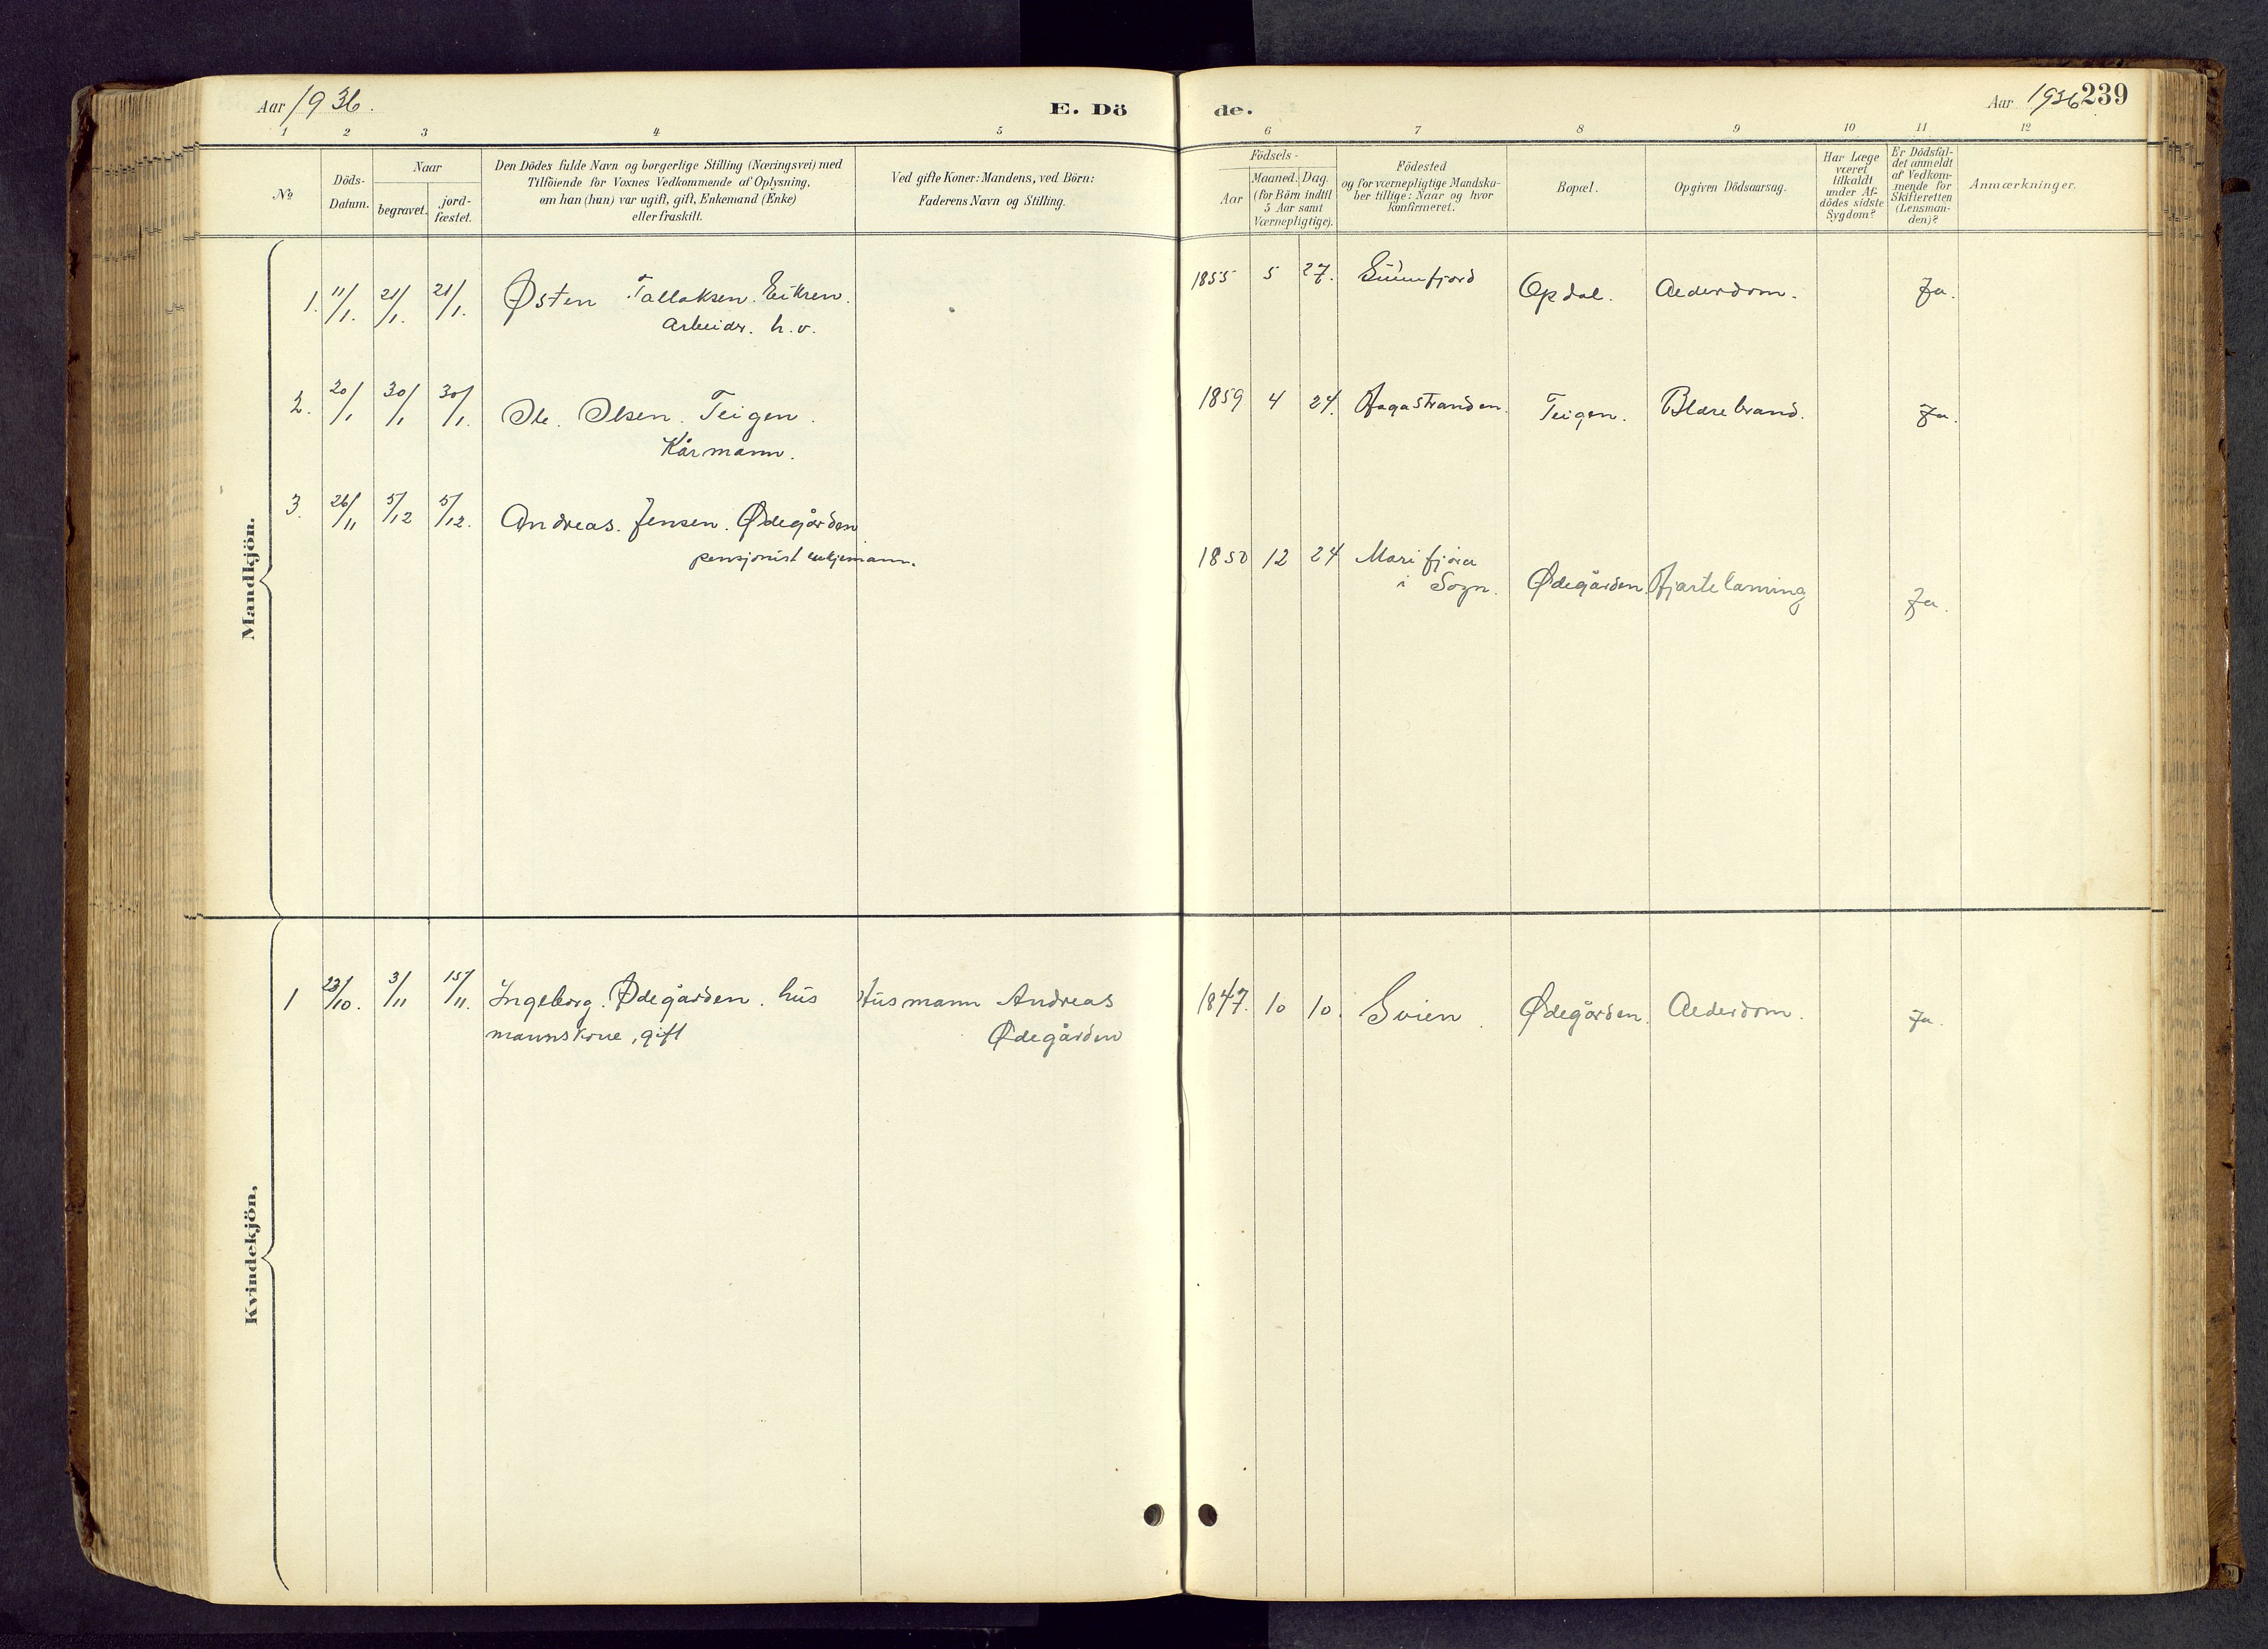 Aar 1936.
E. Dö
de.
Aar 1936.
239
1 2 3 4 5 6 7 8 9 10 11 12
No
Döds-
Datum.
Naar
begravet.
jord-
fæstet.
Den Dödes fulde Navn og borgerlige Stilling (Næringsvei) med
Tilföiende for Voxnes Vedkommende af Oplysning,
om han (hun) var ugift, gift, Enkemand (Enke)
eller fraskilt.
Ved gifte Koner: Mandens, ved Börn:
Faderens Navn og Stilling.
Födsels-
Aar
Maaned. Dag.
(for Börn indtil
5 Aar samt
Værnepligtige).
Födested
og for værnepligtige Mandska-
ber tillige: Naar og hvor
konfirmeret.
Bopæl.
Opgiven Dödsaarsag.
Har Læge
været
tilkaldt
under Af-
dödes sidste
Sygdom?
Er Dödsfal-
det anmeldt
af Vedkom-
mende for
Skifteretten
(Lensman-
den)?
Anmærkninger.
Mandkjön.
1. 11/1. 21/1. 21/1. Østen Tallaksen. Eiksen. 1855 5 27. Opdal. Alderdom. Ja.
arbeider. h.v.
2. 20/1 30/1 30/1. Ole. Olsen. Teigen. 1859 4 24. Hagastranden. Teigen. Blærebrand. Ja.
Kårmann.
3. 26/11 5/12 5/12. Andreas. Jensen. Ødegården
pensjonist enkjemann. 1850 12 24 Marifjøra
i Sogn. Ødegården Hjartelaming Ja.
Kvindekjön.
1 23/10. 3/11 15/11. Ingeborg. Ødegården. hus Husmann Andreas 1847. 10 10. Svien. Ødegården. Alderdom. Ja.
mannskone, gift Ødegården